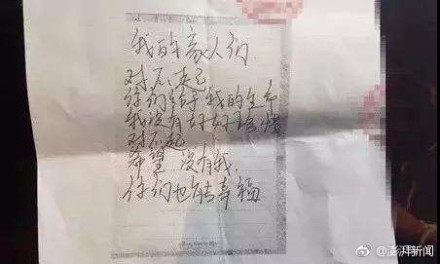 我的家人们
对不起
你们给予我的生命
我没有好好珍惜
对不起
希望没有我
你们也能幸福
@澎湃新闻